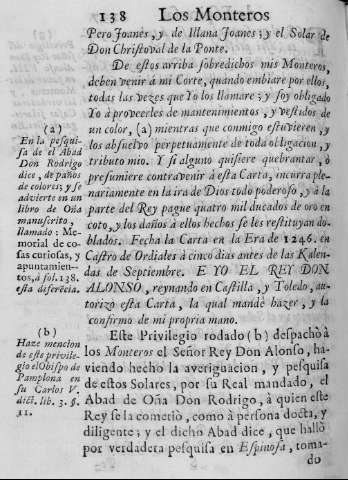 138 Los Monteros
Pero Joanes, y de Illana Joanes; y el Solar de
Don Christoval de la Ponte.
De estos arriba sobredichos mis Monteros,
deben venir à mi Corte, quando embiare por ellos,
todas las vezes que Yo los llamare; y soy obligado
Yo à proveerles de mantenimientos, y vestidos de
un color, (a) mientras que conmigo estuvieren, y
los absuelvo perpetuamente de toda obligacion, y
tributo mio. Y si alguno quisiere quebrantar, ò
presumiere contravenir à esta Carta, incurra ple-
nariamente en la ira de Dios todo poderoso, y à la
parte del Rey pague quatro mil ducados de oro en
coto, y los daños à ellos hechos se les restituyan do-
blados. Fecha la Carta en la Era de 1246. en
Castro de Ordiales à cinco dias antes de las Kalen-
das de Septiembre. E YO EL REY DON
ALONSO, reynando en Castilla, y Toledo, au-
torizo esta Carta, la qual mandè hazer, y la
confirmo de mi propria mano.
Este Privilegio rodado (b) despachò à
los Monteros el Señor Rey Don Alonso, ha-
viendo hecho la averiguacion, y pesquisa
de estos Solares, por su Real mandado, el
Abad de Oña Don Rodrigo, à quien este
Rey se la cometiò, como à persona docta, y
diligente; y el dicho Abad dice, que hallò
por verdadera pesquisa en Espinosa, toma-
do
(a)
En la pesqui-
sa de el Abad
Don Rodrigo
dice, de paños
de colores; y se
advierte en un
libro de Oña
manuscrito,
llamado: Me-
morial de co-
sas curiosas, y
apuntamien-
tos, à fol. 138.
esta diferēcia.
(b)
Haze mencion
de este privile-
gio el Obispo de
Pamplona en
su Carlos V.
dict. lib. 3. §.
11.